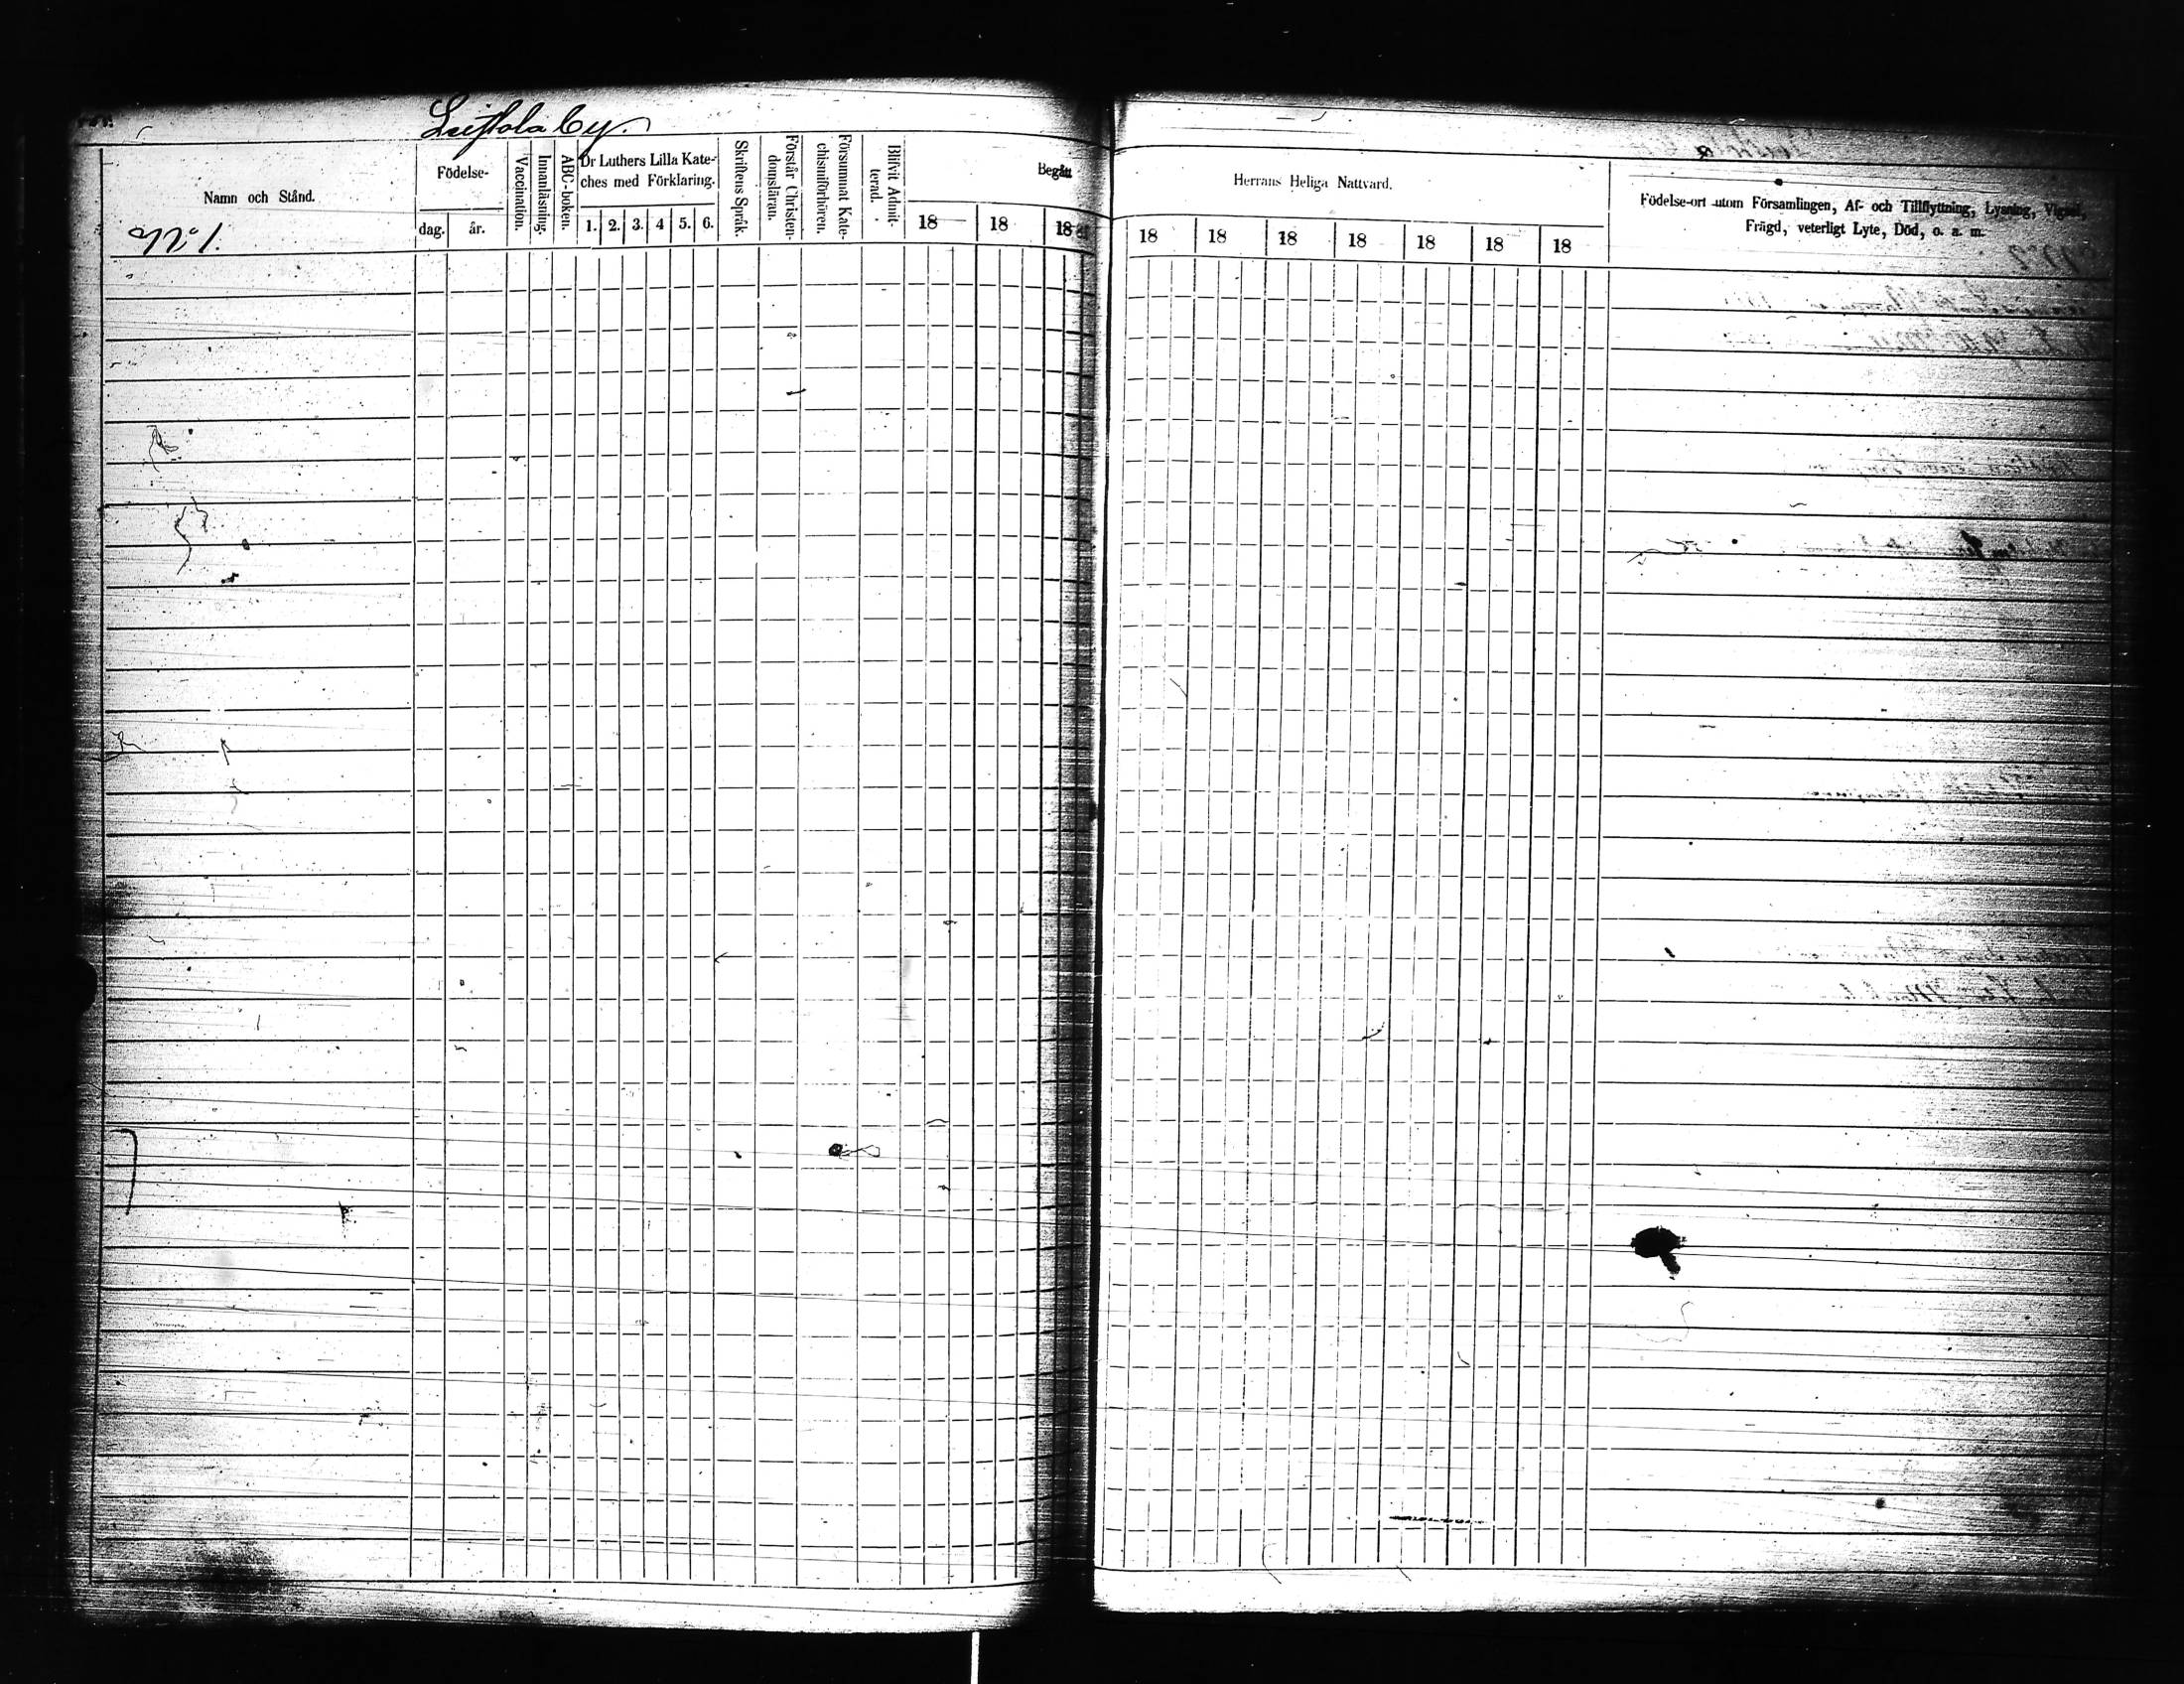 Leistola by.
Namn och Stånd.
N:o 1.
Födelse-
dag.
år.
Vaccination.
Innanläsning.
ABC-boken.
Dr Luthers Lilla Kate-
ches med Förklaring.
1. 2. 3. 4 5. 6.
Skriftens Språk.
Förstår Christen-
domsläran.
Försummat Kate-
chismiförhören.
Blifvit Admit-
terad.
Begått
18 18 18
Herrans Heliga Nattvard.
18 18 18 18 18 18 18
Födelse-ort utom Församlingen, Af- och Tillflyttning, Lysning, Vigsel,
Frägd, veterligt Lyte, Död, o. a. m.